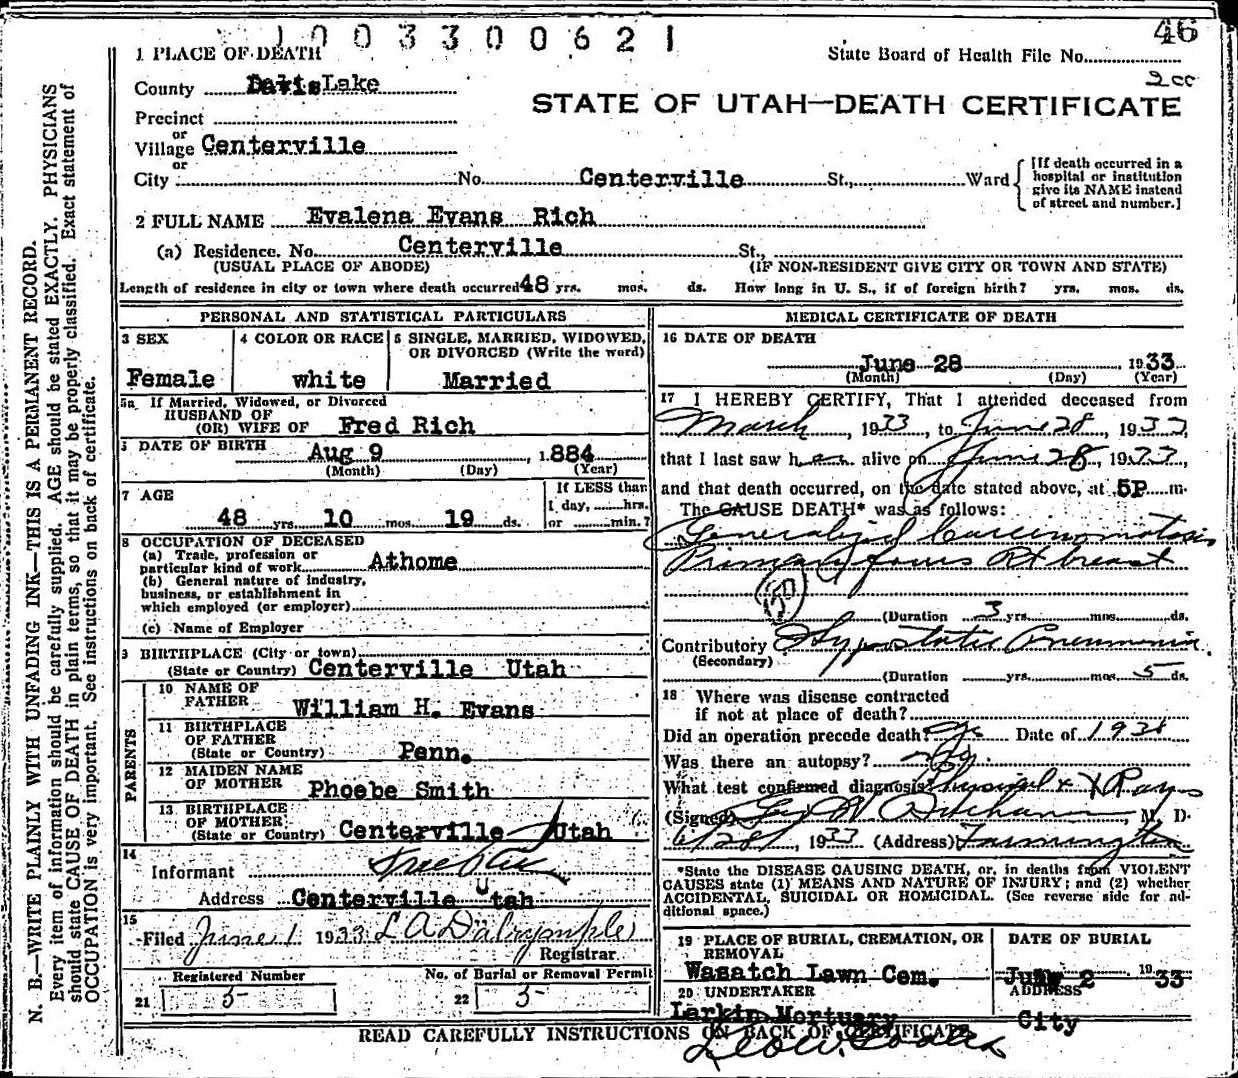 1003300621
46
1 PLACE OF DEATH
State Board of Health File No.
2 cc
County Davis Lake
STATE OF UTAH—DEATH CERTIFICATE
Precinct
or
Village Centerville
or
City No. Centerville St., Ward
[If death occurred in a
hospital or institution
give its NAME instead
of street and number.]
2 FULL NAME Evalena Evans Rich
(a) Residence. No. Centerville St.,
(USUAL PLACE OF ABODE) (IF NON-RESIDENT GIVE CITY OR TOWN AND STATE)
Length of residence in city or town where death occurred 48 yrs. mos. ds. How long in U. S., if of foreign birth? yrs. mos. ds.
PERSONAL AND STATISTICAL PARTICULARS
3 SEX
Female
4 COLOR OR RACE
white
5 SINGLE, MARRIED, WIDOWED,
OR DIVORCED (Write the word)
Married
5a If Married, Widowed, or Divorced
HUSBAND OF
(OR) WIFE OF Fred Rich
6 DATE OF BIRTH
Aug 9, 1884
(Month) (Day) (Year)
7 AGE
48 yrs. 10 mos. 19 ds.
If LESS than
1 day, hrs.
or min.?
8 OCCUPATION OF DECEASED
(a) Trade, profession or
particular kind of work Athome
(b) General nature of industry,
business, or establishment in
which employed (or employer)
(c) Name of Employer
9 BIRTHPLACE (City or town)
(State or Country) Centerville Utah
PARENTS
10 NAME OF
FATHER William H. Evans
11 BIRTHPLACE
OF FATHER
(State or Country) Penn.
12 MAIDEN NAME
OF MOTHER Phoebe Smith
13 BIRTHPLACE
OF MOTHER
(State or Country) Centerville Utah
14
Informant
Address Centerville Utah
15
Filed June 1 1933 L A Dalrymple
Registrar
Registered Number
21 5
No. of Burial or Removal Permit
22 3
MEDICAL CERTIFICATE OF DEATH
16 DATE OF DEATH
June 28, 1933
(Month) (Day) (Year)
17 I HEREBY CERTIFY, That I attended deceased from
March, 1933, to June 28, 1933,
that I last saw her alive on June 28, 1933,
and that death occurred, on the date stated above, at 5P m.
The CAUSE DEATH* was as follows:
Generalized Carcinomatosis
Primary focus Rt breast
(Duration 3 yrs. mos. ds.
Contributory Hypostatic Pneumonia
(Secondary)
(Duration yrs. mos. 5 ds.
18 Where was disease contracted
if not at place of death?
Did an operation precede death? yes Date of 1931
Was there an autopsy? no
What test confirmed diagnosis Physical & X Rays
(Signed) M. D.
6/28, 1933 (Address) Farmington
*State the DISEASE CAUSING DEATH, or, in deaths from VIOLENT
CAUSES state (1) MEANS AND NATURE OF INJURY; and (2) whether
ACCIDENTAL, SUICIDAL OR HOMICIDAL. (See reverse side for ad-
ditional space.)
19 PLACE OF BURIAL, CREMATION, OR
REMOVAL
Wasatch Lawn Cem.
DATE OF BURIAL
2 1933
20 UNDERTAKER
Larkin Mortuary
ADDRESS
City
READ CAREFULLY INSTRUCTIONS ON BACK OF CERTIFICATE
N. B.—WRITE PLAINLY WITH UNFADING INK—THIS IS A PERMANENT RECORD.
Every item of information should be carefully supplied. AGE should be stated EXACTLY. PHYSICIANS
should state CAUSE OF DEATH in plain terms, so that it may be properly classified. Exact statement of
OCCUPATION is very important. See instructions on back of certificate.